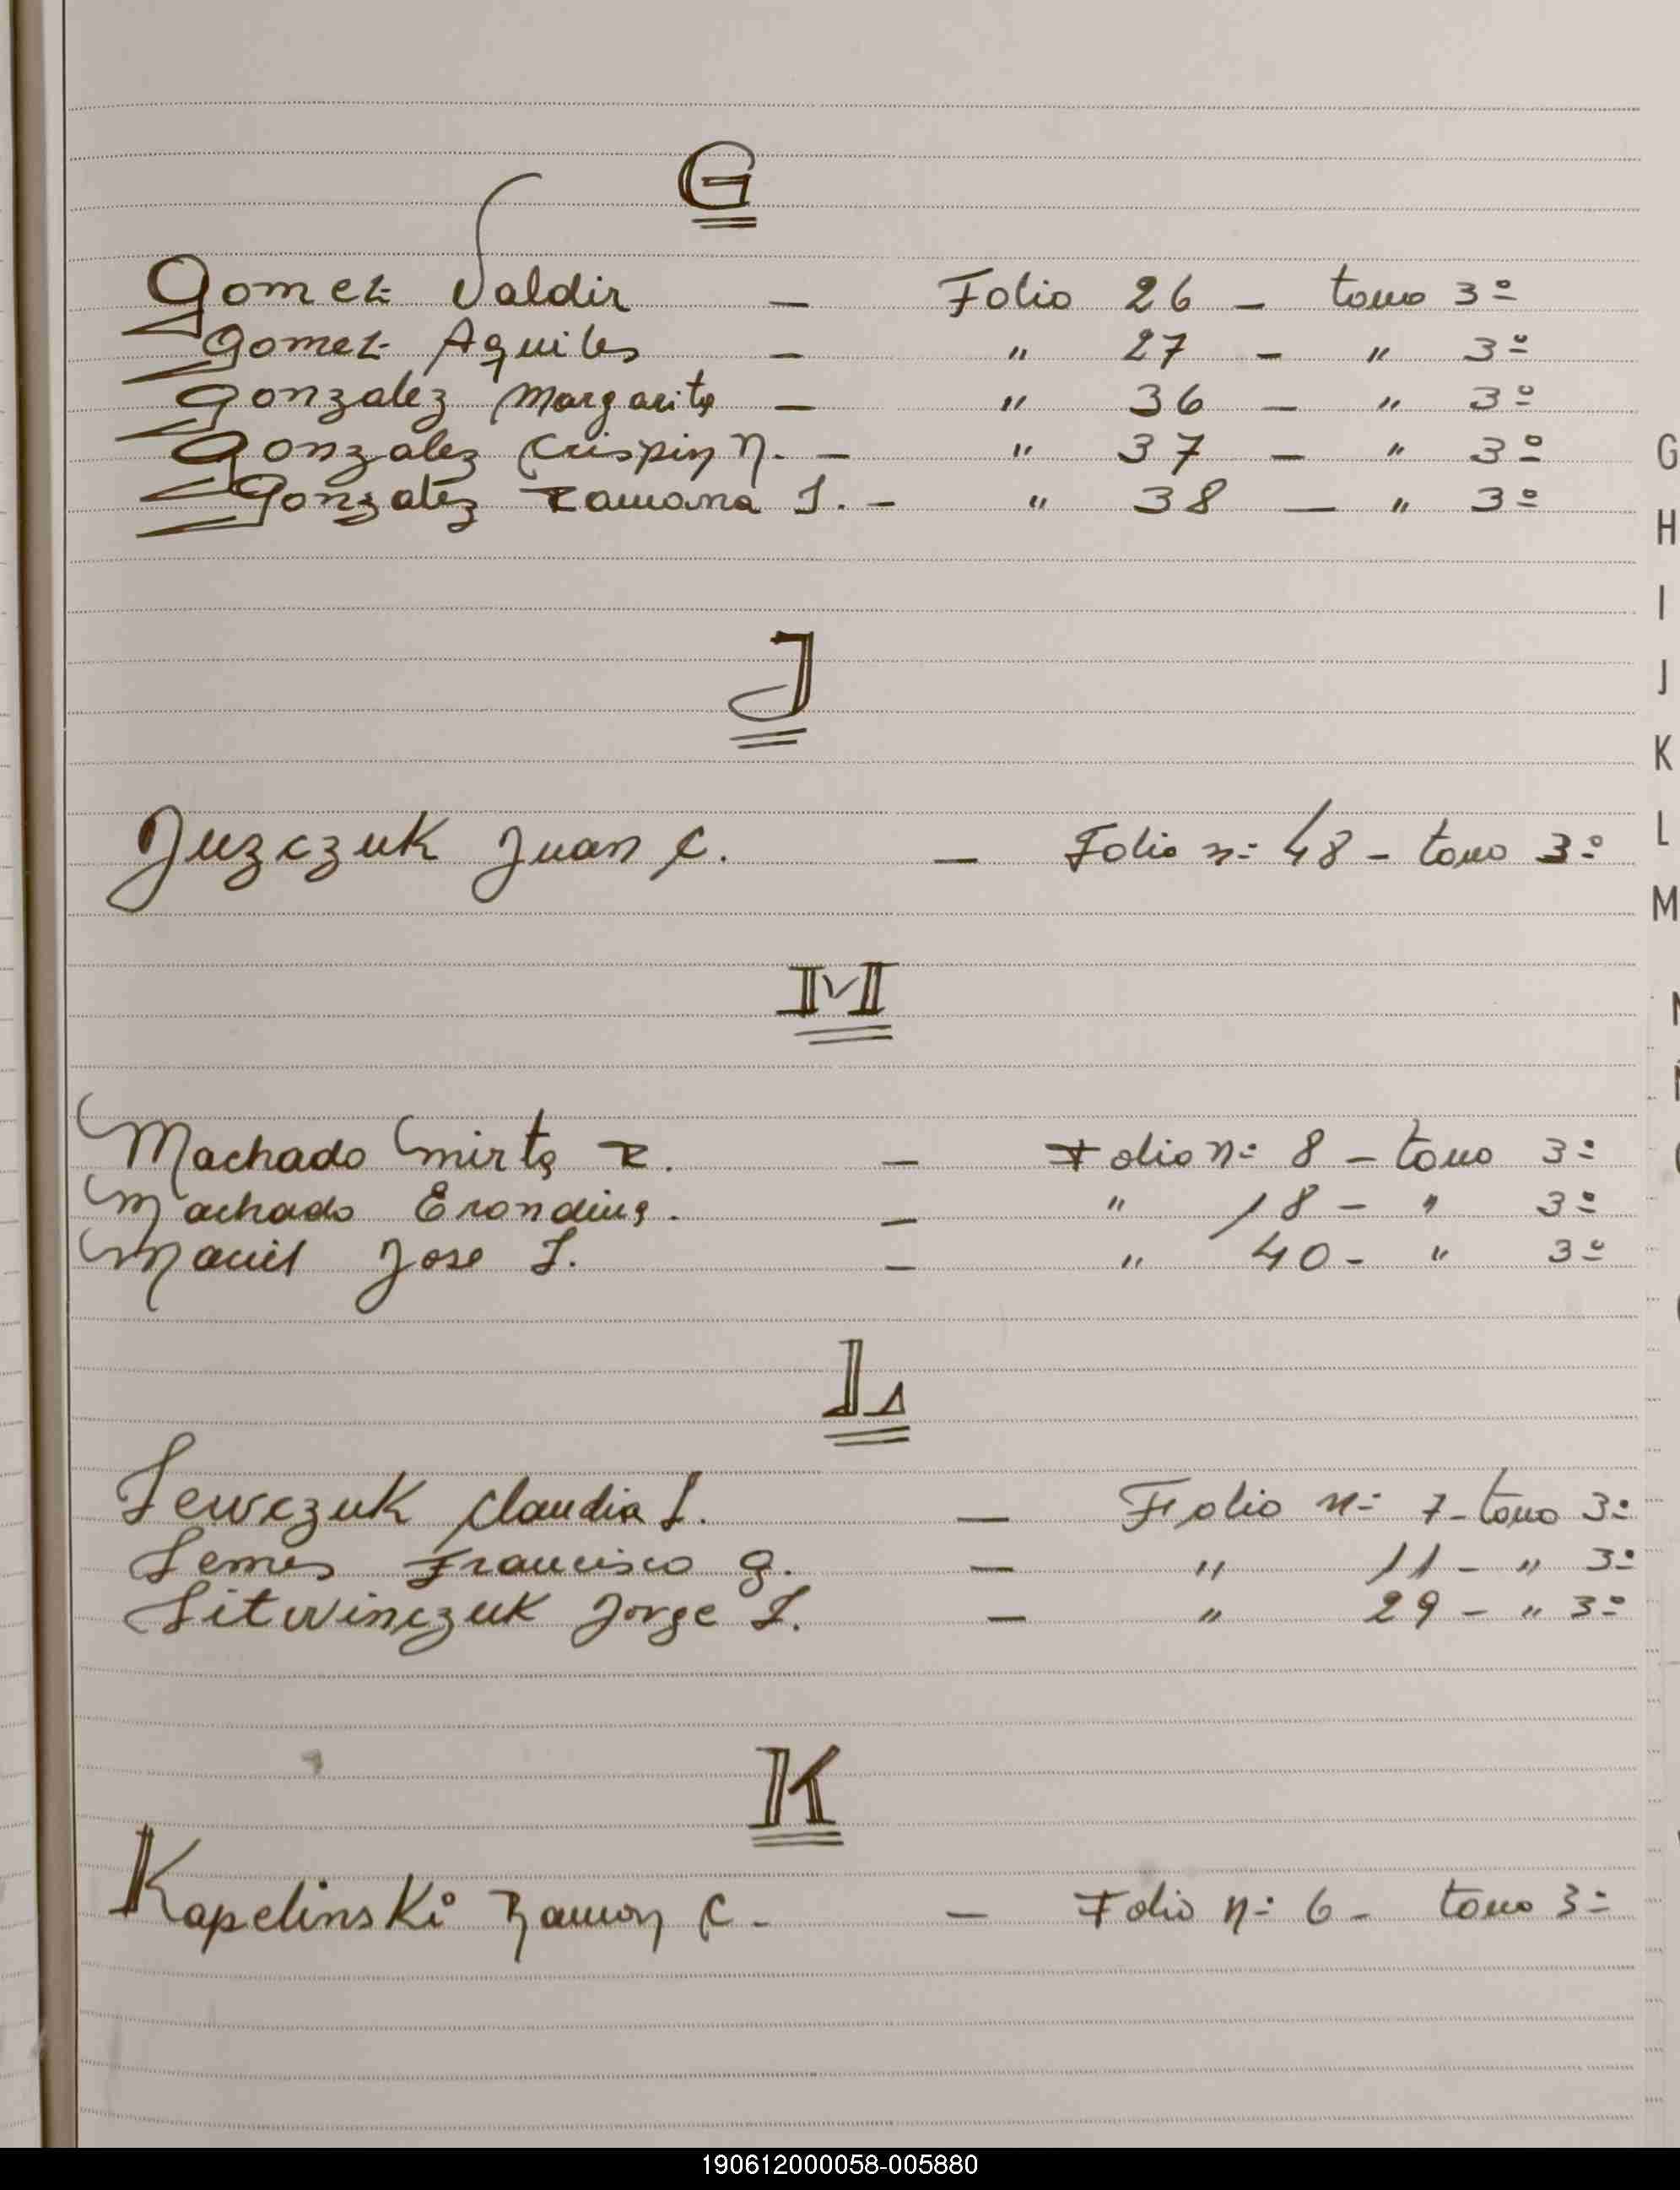 G
Gomez Valdir — Folio 26 — tomo 3º
Gomez Aquiles — " 27 — " 3º
Gonzalez Margarita — " 36 — " 3º
Gonzalez Crispin N. — " 37 — " 3º
Gonzalez Ramona I. — " 38 — " 3º
J
Juzczuk Juan C. — Folio nº 48 — tomo 3º
M
Machado Mirta R. — Folio nº 8 — tomo 3º
Machado Erondina. — " 18 — " 3º
Maciel Jose L. — " 40 — " 3º
L
Lewczuk Claudia L. — Folio nº 7 — tomo 3º
Lemes Francisco G. — " 11 — " 3º
Litwinczuk Jorge L. — " 29 — " 3º
K
Kapelinski Ramon C. — Folio nº 6 — tomo 3º
G
H
I
J
K
L
M
190612000058-005880